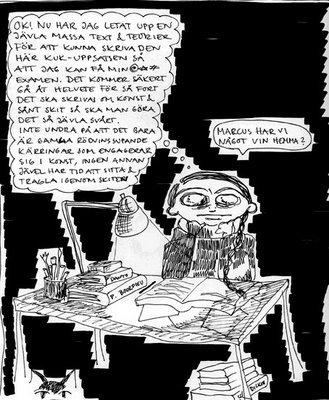 OK! NU HAR JAG LETAT UPP EN
JÄVLA MASSA TEXT & TEORIER
FÖR ATT KUNNA SKRIVA DEN
HÄR KUK-UPPSATSEN SÅ
ATT JAG KAN FÅ MIN
EXAMEN. DET KOMMER SÄKERT
GÅ ÅT HELVETE FÖR SÅ FORT
DET SKA SKRIVAS OM KONST &
SÅNT SKIT SÅ SKA MAN GÖRA
DET SÅ JÄVLA SVÅRT.
INTE UNDRA PÅ ATT DET BARA
ÄR GAMLA RÖDVINSSUPANDE
KÄRRINGAR SOM ENGAGERAR
SIG I KONST, INGEN ANNAN
JÄVEL HAR TID ATT SITTA &
TRAGLA IGENOM SKITEN!
MARCUS HAR VI
NÅGOT VIN HEMMA?
P. BOURDIEU